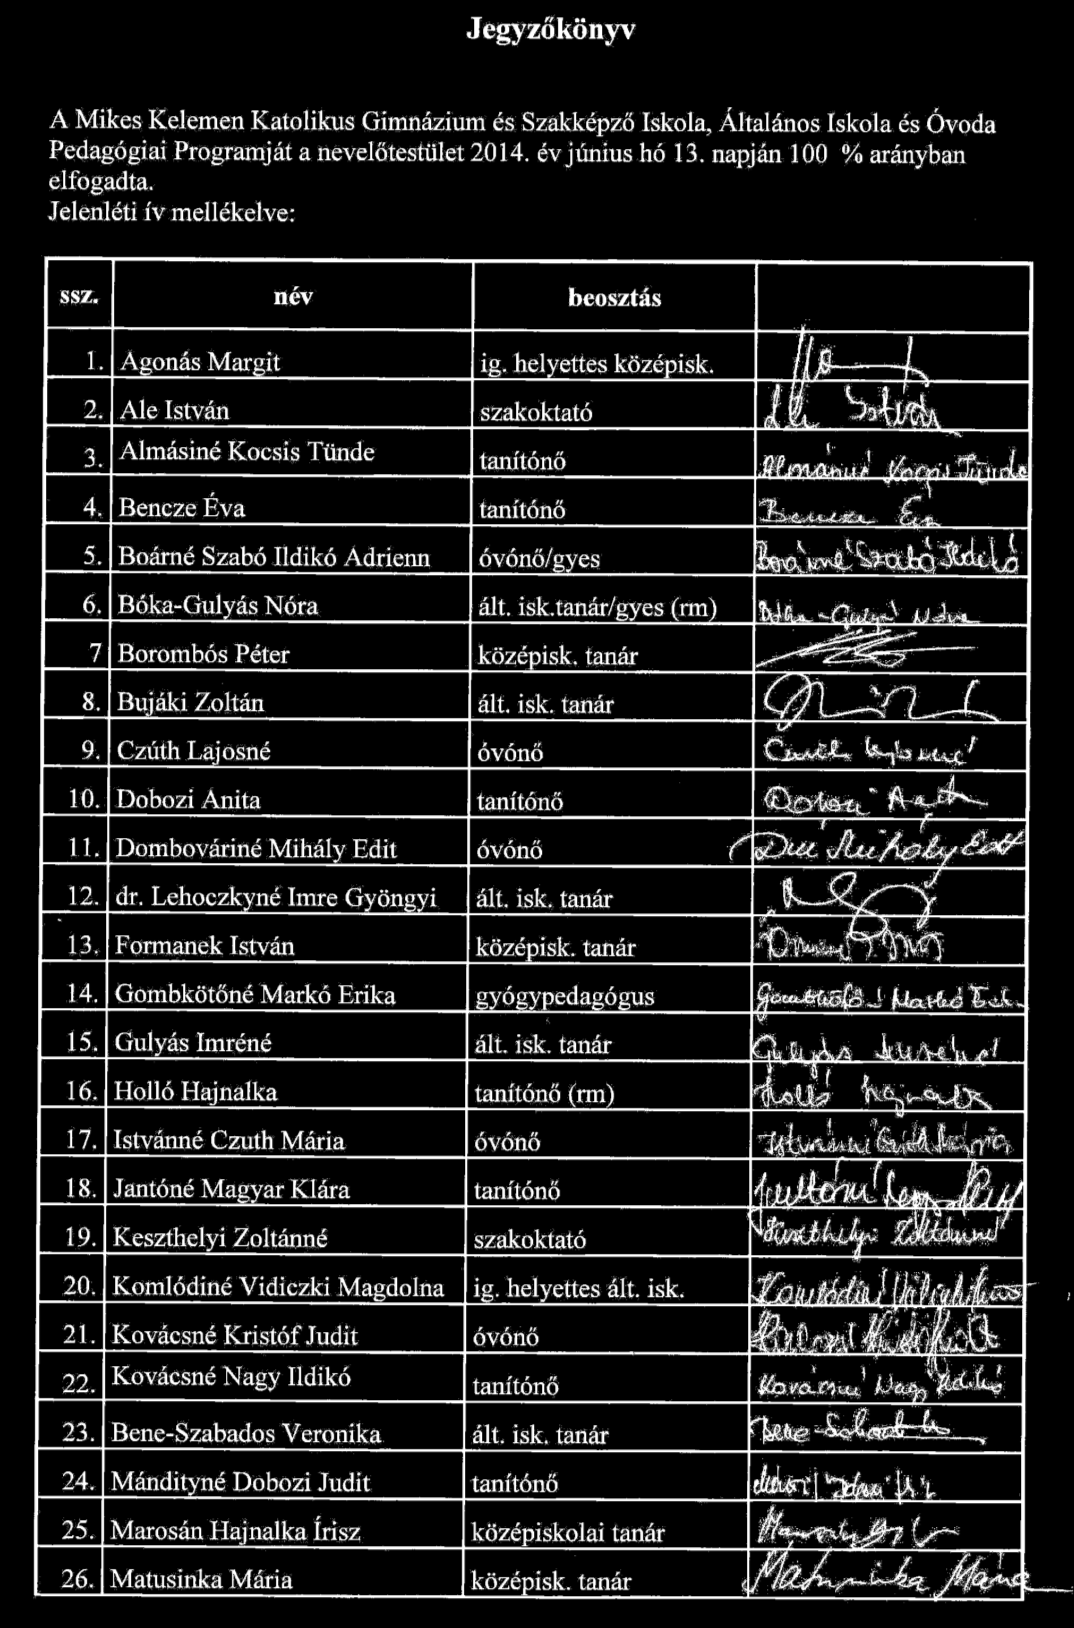 Jegyzőkönyv
A Mikes Kelemen Katolikus Gimnázium és Szakképző Iskola, Általános Iskola és Óvoda
Pedagógiai Programját a nevelőtestület 2014. év június hó 13. napján 100 % arányban
elfogadta.
Jelenléti ív mellékelve:
ssz. név beosztás
1. Agonás Margit ig. helyettes középisk.
2. Ale István szakoktató István
3. Almásiné Kocsis Tünde tanítónő Almásiné Kocsis Tünde
4. Bencze Éva tanítónő Bencze Éva
5. Boárné Szabó Ildikó Adrienn óvónő/gyes Boárné Szabó Ildikó
6. Bóka-Gulyás Nóra ált. isk.tanár/gyes (rm) Bóka-Gulyás Nóra
7 Borombós Péter középisk. tanár
8. Bujáki Zoltán ált. isk. tanár
9. Czúth Lajosné óvónő Czúth Lajosné
10. Dobozi Anita tanítónő Dobozi Anita
11. Dombováriné Mihály Edit óvónő Mihály Edit
12. dr. Lehoczkyné Imre Gyöngyi ált. isk. tanár
13. Formanek István középisk. tanár
14. Gombkötőné Markó Erika gyógypedagógus Gombkötőné Markó
15. Gulyás Imréné ált. isk. tanár Gulyás Imréné
16. Holló Hajnalka tanítónő (rm) Holló Hajnalka
17. Istvánné Czuth Mária óvónő Istvánné Czuth Mária
18. Jantóné Magyar Klára tanítónő Jantóné
19. Keszthelyi Zoltánné szakoktató Keszthelyi Zoltánné
20. Komlódiné Vidiczki Magdolna ig. helyettes ált. isk. Komlódiné
21. Kovácsné Kristóf Judit óvónő Kovácsné Kristóf Judit
22. Kovácsné Nagy Ildikó tanítónő Kovácsné Nagy Ildikó
23. Bene-Szabados Veronika ált. isk. tanár Bene-Szabados
24. Mándityné Dobozi Judit tanítónő
25. Marosán Hajnalka Írisz középiskolai tanár
26. Matusinka Mária középisk. tanár Matusinka Mária